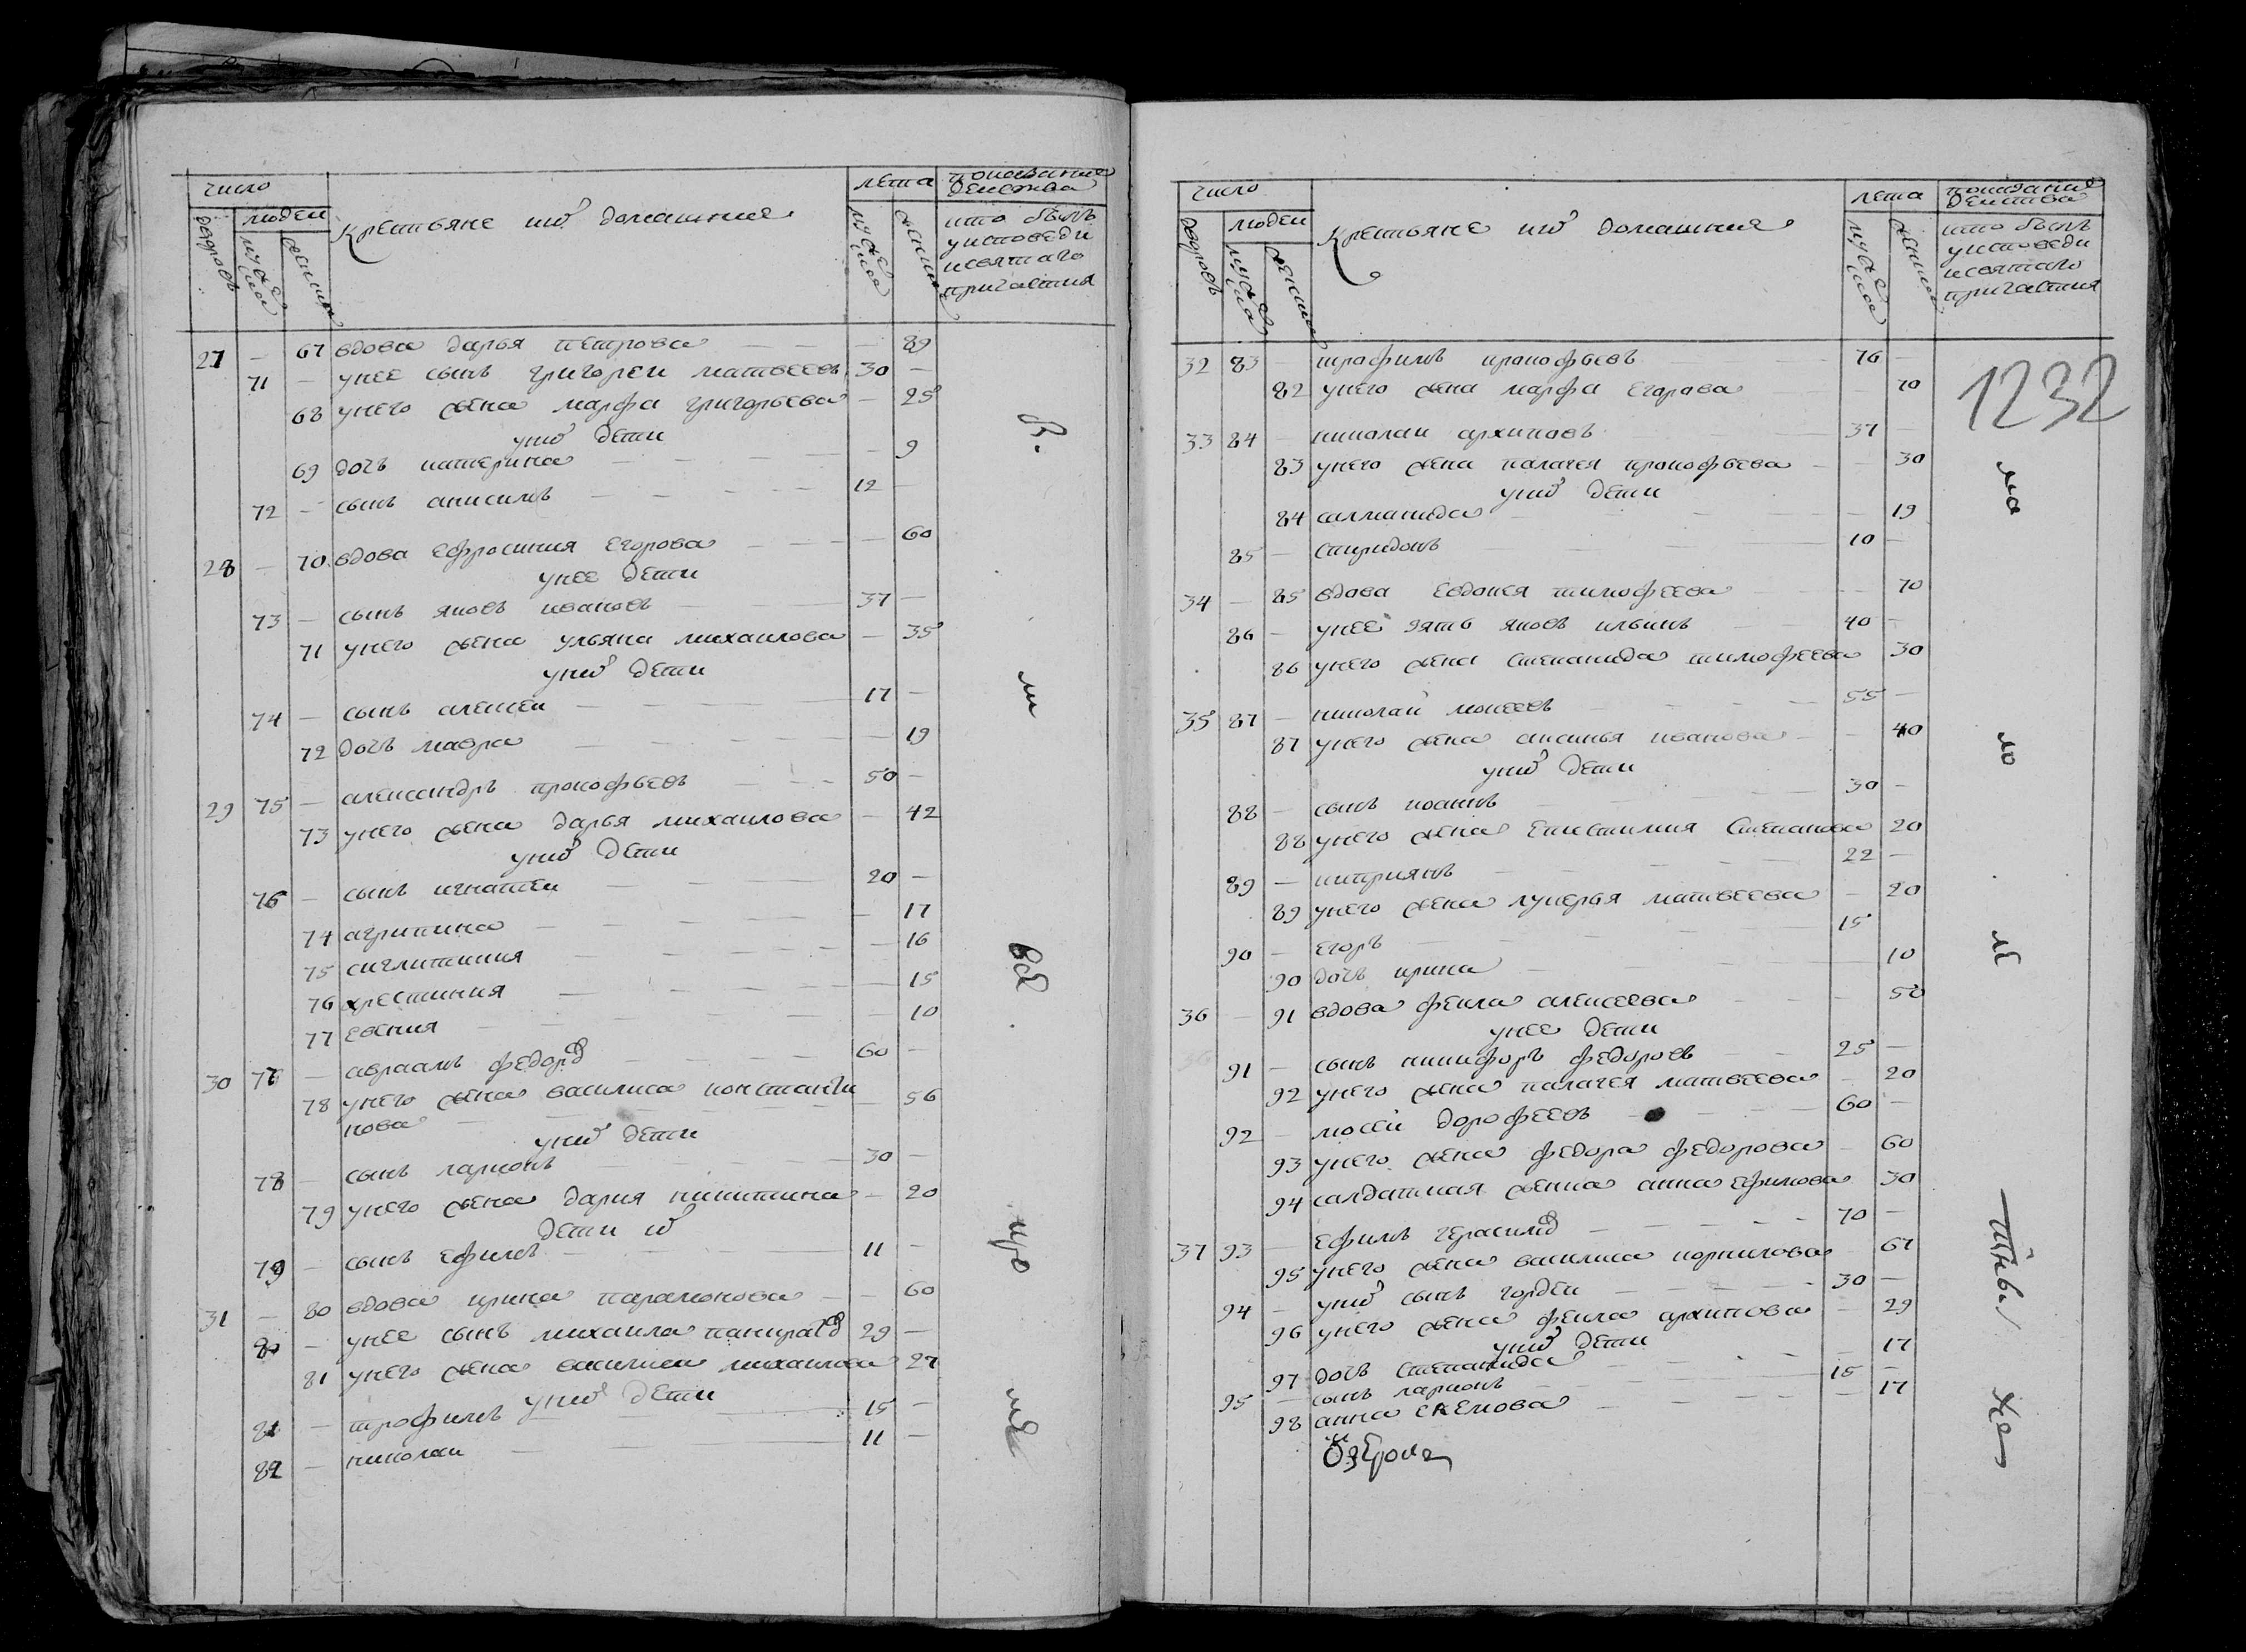 число
лета
показание действа
дворовъ
людеи
мужеска
женска
крестьяне ихъ домашние
мужеска
женска
кто былъ
уисповеди
исвятаго
причастия
27 — 67 вдова дарья петрова — 89
71 — унее сынъ григореи матвеевъ 30 —
68 унего жена марфа григорьева — 25
унихъ дети
69 дочь катерина — 9
72 — сынъ анисимъ 12 —
28 — 70 вдова ефросиния егорова — 60
унее дети
73 — сынъ яковъ ивановъ 37 —
71 унего жена ульяна михаилова — 35
унихъ дети
74 — сынъ алексеи 17 —
72 дочь мавра — 19
29 75 — александръ прокофьевъ 50 —
73 унего жена дарья михаилова — 42
унихъ дети
76 — сынъ игнатеи 20 —
74 агрипина — 17
75 сиглитикия — 16
76 хрестиния — 15
77 евгения — 10
30 77 — авраамъ федоровъ 60 —
78 унего жена василиса константи
нова — 56
унихъ дети
78 — сынъ ларионъ 30 —
79 унего жена дария никитина — 20
дети ихъ
79 — сынъ ефимъ 11 —
31 — 80 вдова ирина парамонова — 60
80 — унее сынъ михаила панкратовъ 29 —
81 унего жена василиса михаилова 27
унихъ дети
81 — трофимъ 15 —
82 — николаи 11 —
число
лета
показание действа
дворовъ
людеи
мужеска
женска
крестьяне ихъ домашние
мужеска
женска
кто былъ
уисповеди
исвятаго
причастия
1232
32 83 — трофимъ прокофьевъ 76 —
82 унего жена марфа егорова 70
33 84 — николаи архиповъ 37 —
83 унего жена палагея прокофьева — 30
унихъ дети
84 саламанида — 19
85 — спиридонъ 10 —
34 — 85 вдова евдокея тимофеева — 70
86 — унее зять яковъ ильинъ 40 —
86 унего жена степанида тимофеева 30
35 87 — николаи моисеевъ 55 —
87 унего жена анасья иванова — 40
унихъ дети
88 — сынъ иоаннъ 30 —
88 унего жена епистимия степанова 20
89 — киприянъ 22 —
89 унего жена лукерья матвеева — 20
90 — егоръ 15
90 дочь ирина 10
36 — 91 вдова фекла алексеева — 50
унее дети
91 — сынъ никифоръ федоровъ 25 —
92 унего жена палагея матвеева — 20
92 — мосеи дорофеевъ 60 —
93 унего жена федора федорова — 60
94 салдатская женка анна ефимова 30
37 93 — ефимъ герасимовъ 70 —
95 унего жена василиса корнилова 67
94 — унихъ сынъ гордеи 30 —
96 унего жена фекла архипова — 29
унихъ дети
97 дочь степанида — 17
95 — сынъ ларионъ 15 —
98 анна екемова — 17